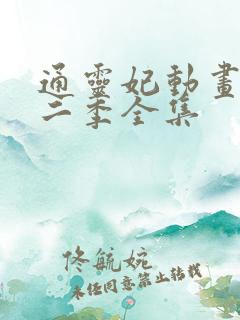 通靈妃動畫
二季全集
佟毓婉
未经同意禁止转载